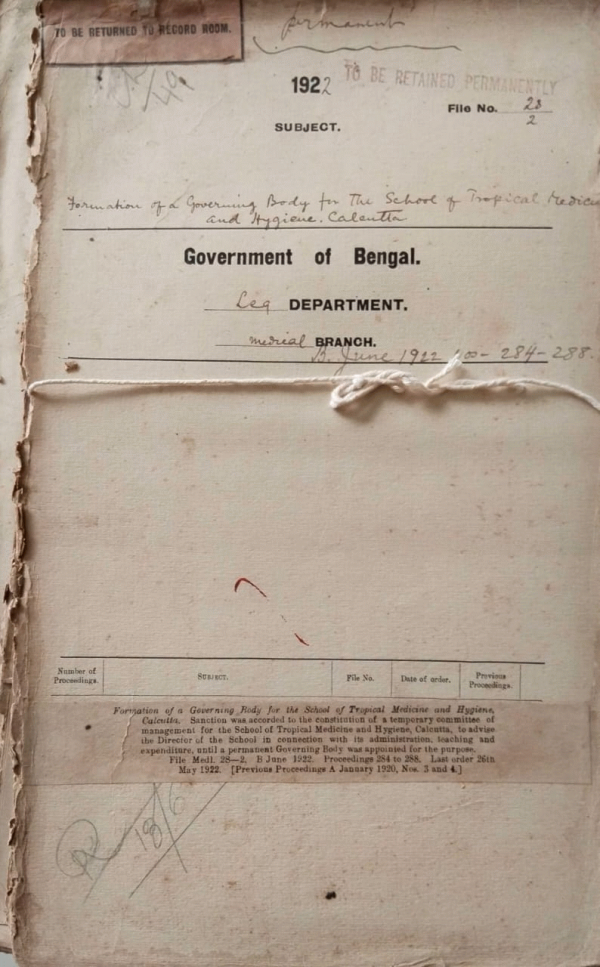 TO BE RETURNED TO RECORD ROOM.
permanent
1922
TO BE RETAINED PERMANENTLY
File No. 28
2
SUBJECT.
Formation of a Governing Body for The School of Tropical Medicine
and Hygiene. Calcutta
Government of Bengal.
Leg DEPARTMENT.
medical BRANCH.
B. June 1922 284-288.
Number of Proceedings.
SUBJECT.
File No.
Date of order.
Previous Proceedings.
Formation of a Governing Body for the School of Tropical Medicine and Hygiene,
Calcutta. Sanction was accorded to the constitution of a temporary committee of
management for the School of Tropical Medicine and Hygiene, Calcutta, to advise
the Director of the School in connection with its administration, teaching and
expenditure, until a permanent Governing Body was appointed for the purpose.
File Medl. 28—2. B June 1922. Proceedings 284 to 288. Last order 26th
May 1922. [Previous Proceedings A January 1920, Nos. 3 and 4.]
18/6